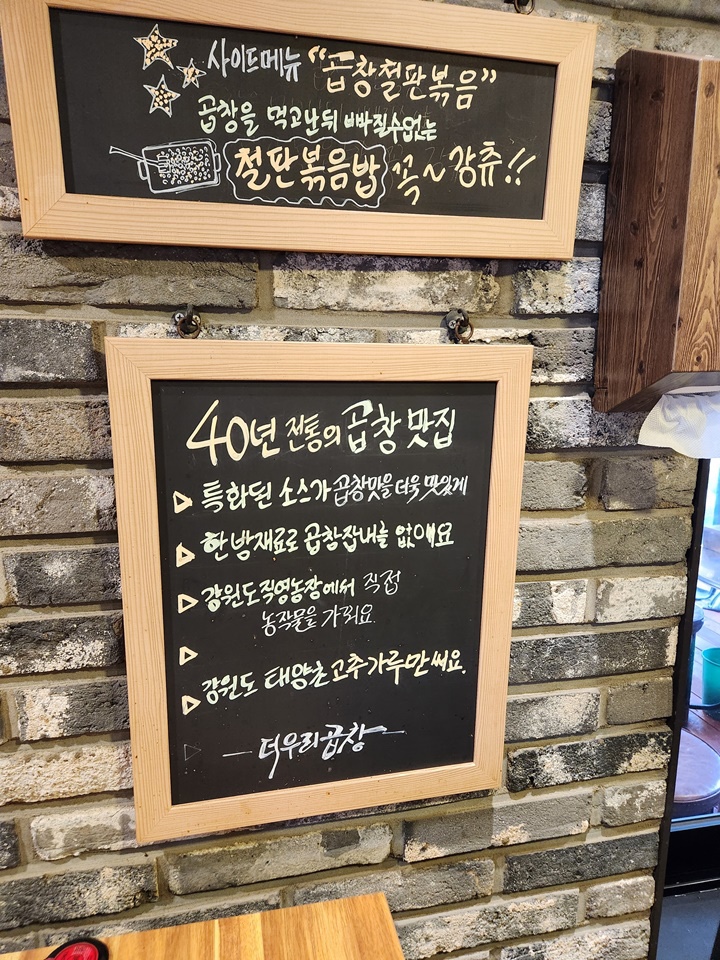 사이드메뉴 "곱창철판볶음"
곱창을 먹고난뒤 빠질수없는
철판볶음밥 꼭~ 강츄!!
40년 전통의 곱창 맛집
▷ 특화된 소스가 곱창맛을 더욱 맛있게
▷ 한방재료로 곱창잡내를 없애요
▷ 강원도직영농장에서 직접
농작물을 가꿔요
▷
▷ 강원도 태양초고추가루만써요.
▷ ― 더우리곱창 ―